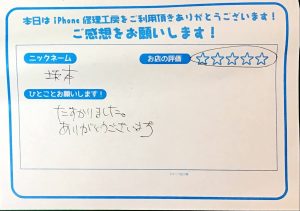 本日は iPhone 修理工房をご利用頂きありがとうございます！
ご感想をお願いします！
ニックネーム
お店の評価
☆☆☆☆☆
塚本
ひとことお願いします！
たすかりました。
ありがとうございます